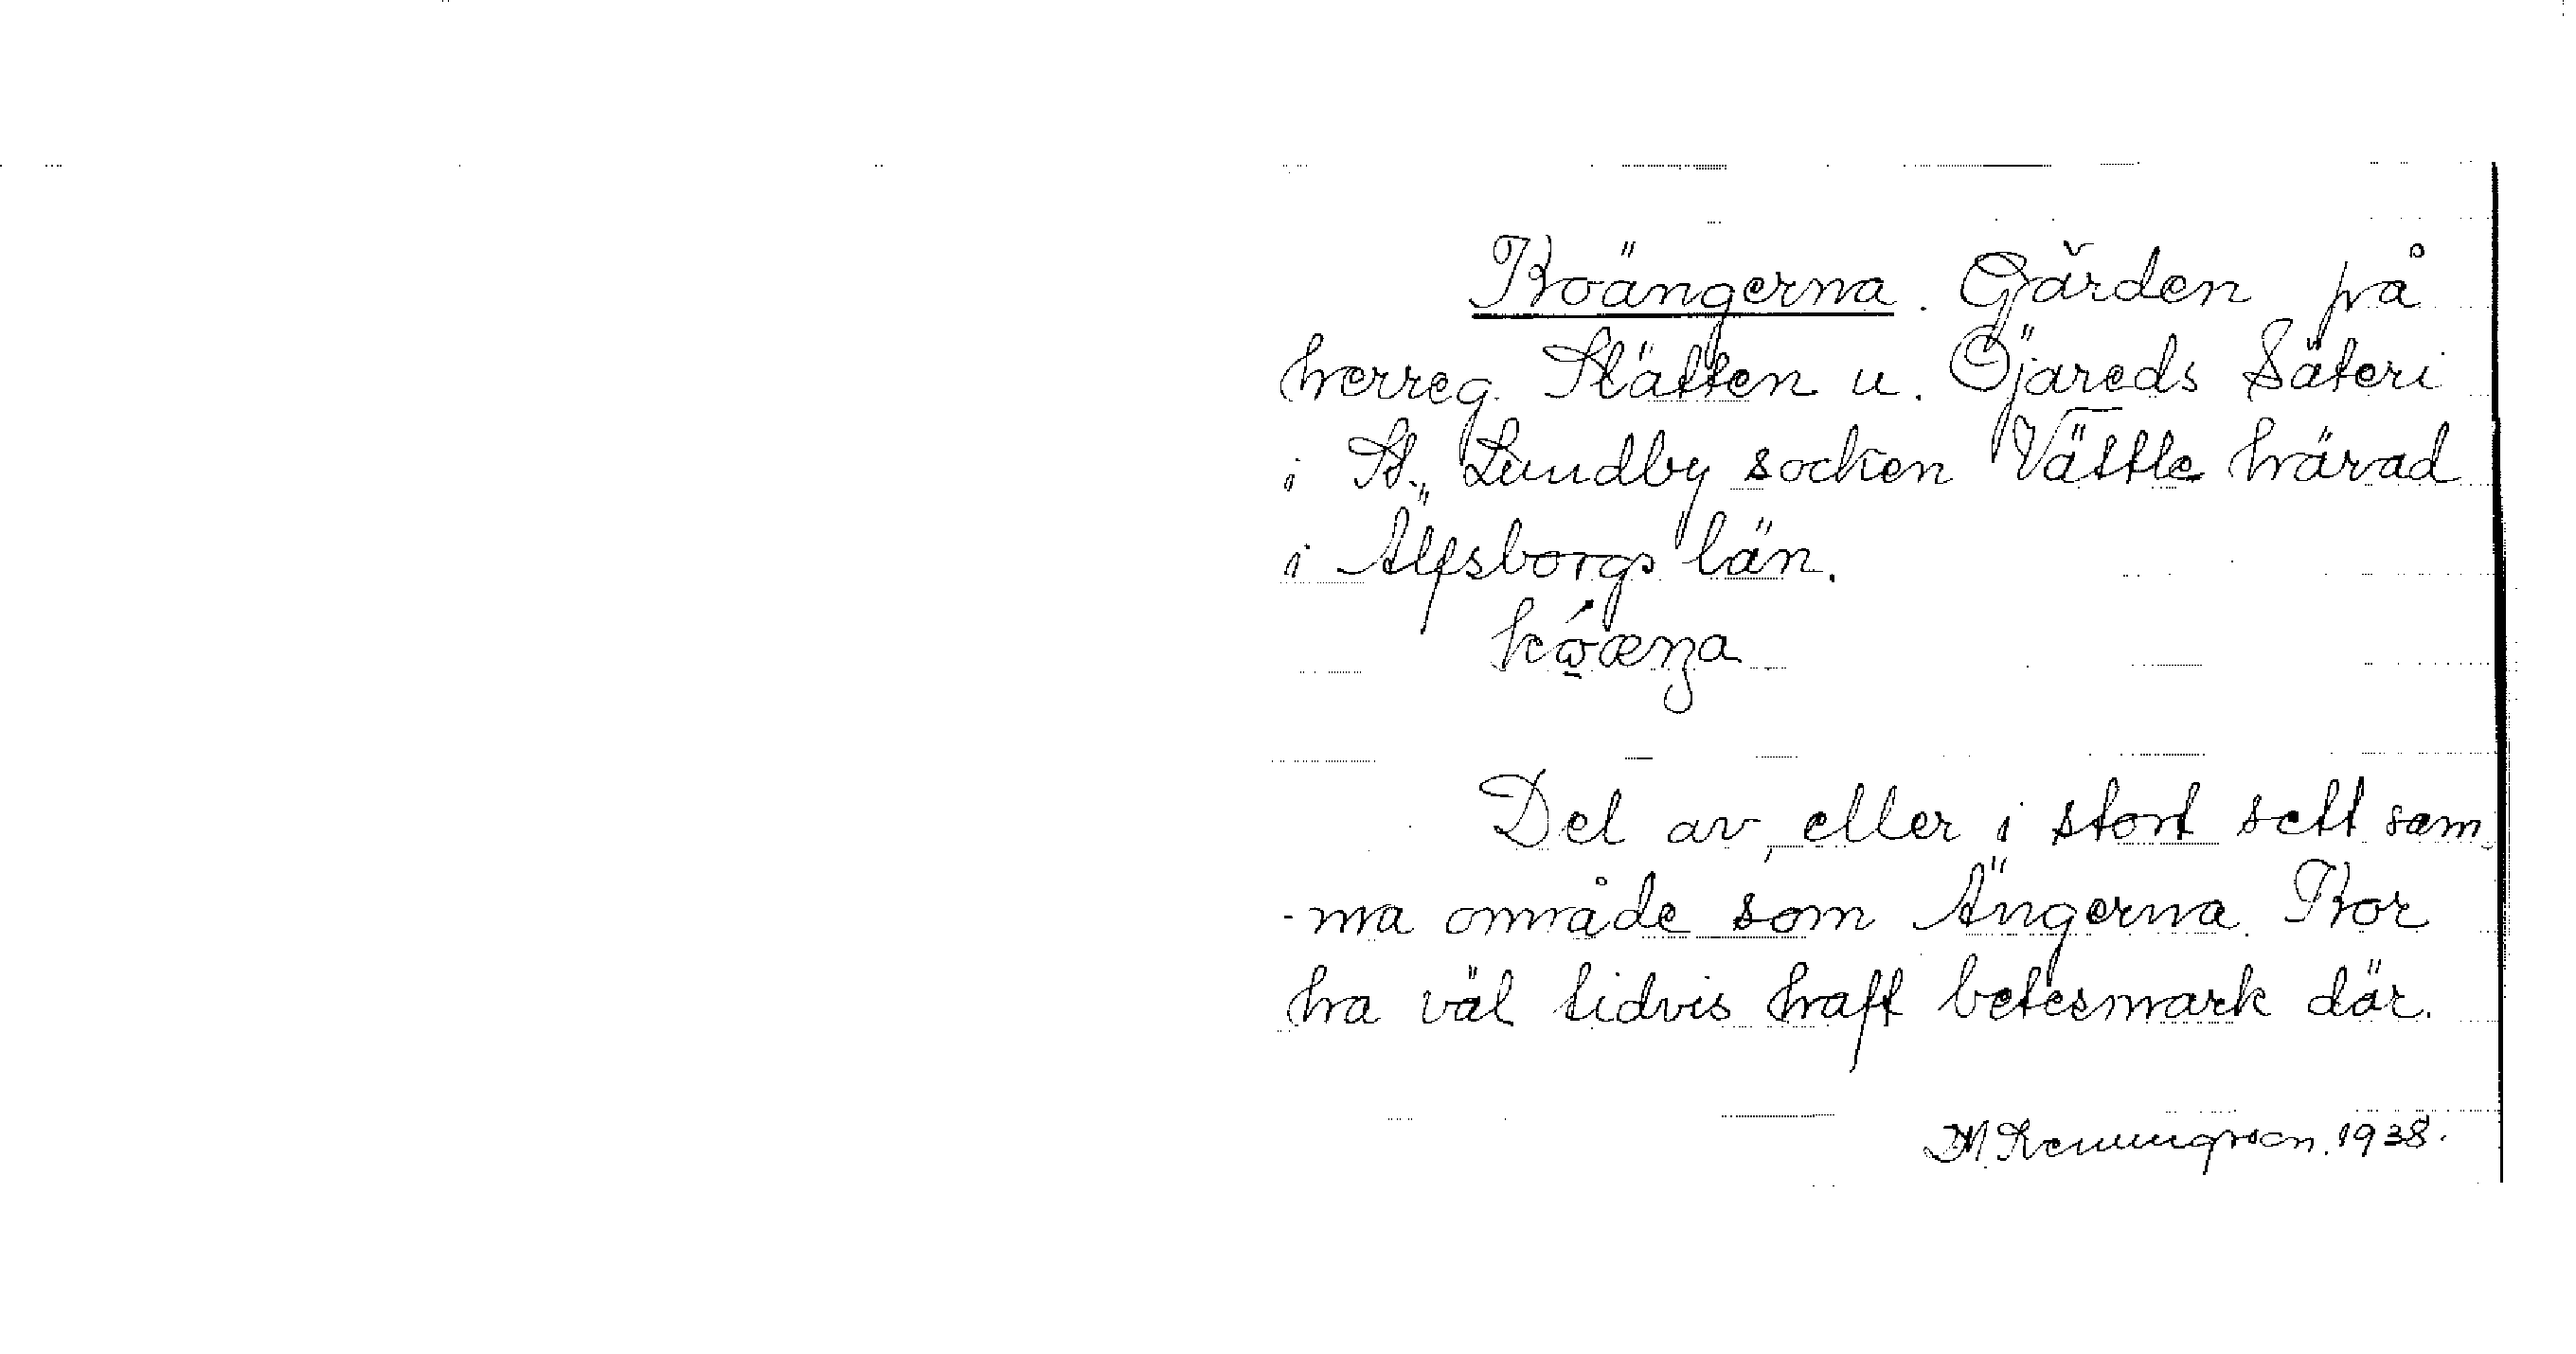 Koängerna. Gården på
herreg. Slätten u. Öjareds Säteri
i St. Lundby socken Vättle härad
i Älfsborgs län.
Del av, eller i stort sett sam
-ma område som Ängerna. Kor
ha väl tidvis haft betesmark där.
1938.